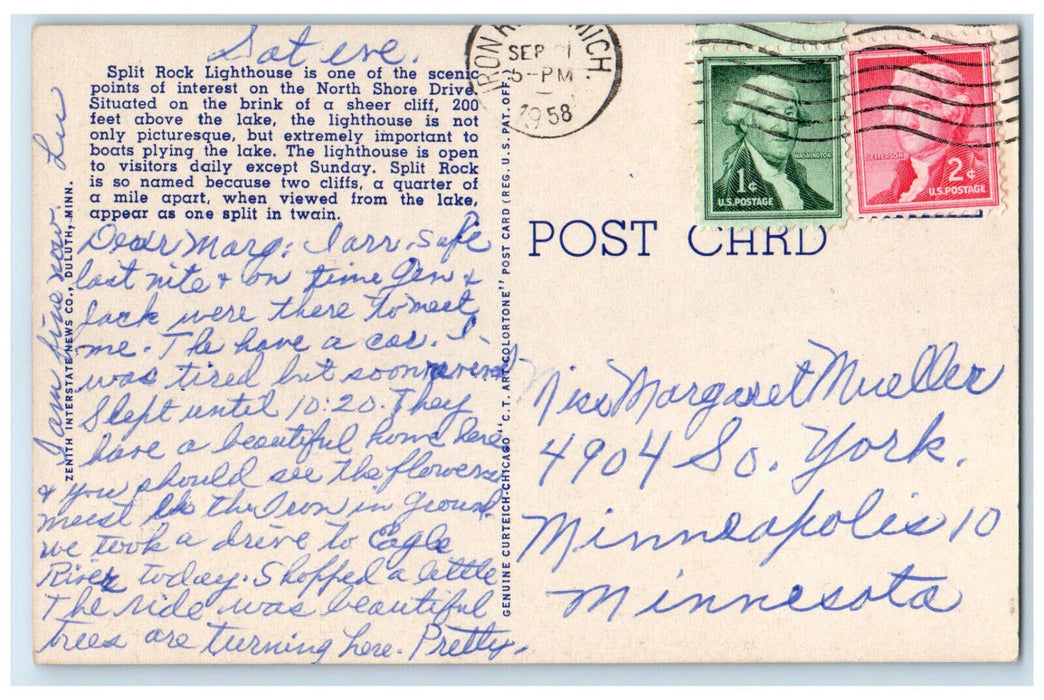 Sat eve.
Split Rock Lighthouse is one of the scenic
points of interest on the North Shore Drive.
Situated on the brink of a sheer cliff, 200
feet above the lake, the lighthouse is not
only picturesque, but extremely important to
boats plying the lake. The lighthouse is open
to visitors daily except Sunday. Split Rock
is so named because two cliffs, a quarter of
a mile apart, when viewed from the lake,
appear as one split in twain.
Dear Marg: I arr. safe
last nite & on time Gen &
Jack were there to meet
me. The have a car. I
was tired but soon
Slept until 10:20. They
have a beautiful home here
& you should see the flowers
must be the Iron in ground.
we took a drive to Eagle
River today. Shopped a little
The ride was beautiful
trees are turning here. Pretty.
I am fine now. Lu
ZENITH INTERSTATE NEWS CO., DULUTH, MINN.
GENUINE CURTEICH-CHICAGO "C. T. ART-COLORTONE" POST CARD (REG. U. S. PAT. OFF.)
IRON MICH
SEP 21
5-PM
1958
WASHINGTON
1¢
U.S. POSTAGE
JEFFERSON
2¢
U.S. POSTAGE
POST CARD
Miss Margaret Mueller
4904 So. York.
Minneapolis 10
Minnesota